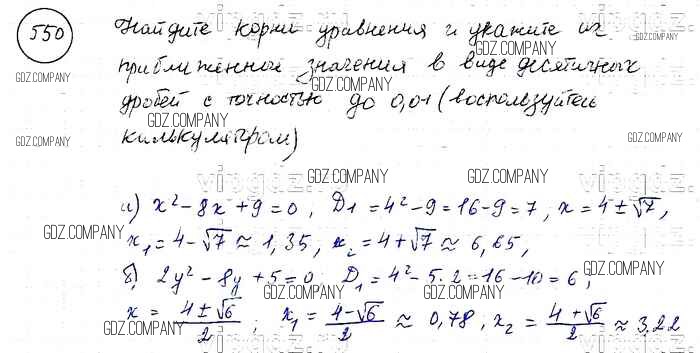 550
Найдите корни уравнения и укажите их
приближенные значения в виде десятичных
дробей с точностью до 0,01 (воспользуйтесь
калькулятором)
а) x² - 8x + 9 = 0, D₁ = 4² - 9 = 16 - 9 = 7, x = 4 ± √7,
x₁ = 4 - √7 ≈ 1,35, x₂ = 4 + √7 ≈ 6,65,
б) 2y² - 8y + 5 = 0 D₁ = 4² - 5·2 = 16 - 10 = 6,
x = (4 ± √6)/2 ; x₁ = (4 - √6)/2 ≈ 0,78, x₂ = (4 + √6)/2 ≈ 3,22
GDZ.COMPANY
GDZ.COMPANY
GDZ.COMPANY
GDZ.COMPANY
GDZ.COMPANY
GDZ.COMPANY
GDZ.COMPANY
GDZ.COMPANY
GDZ.COMPANY
GDZ.COMPANY
GDZ.COMPANY
GDZ.COMPANY
GDZ.COMPANY
GDZ.COMPANY